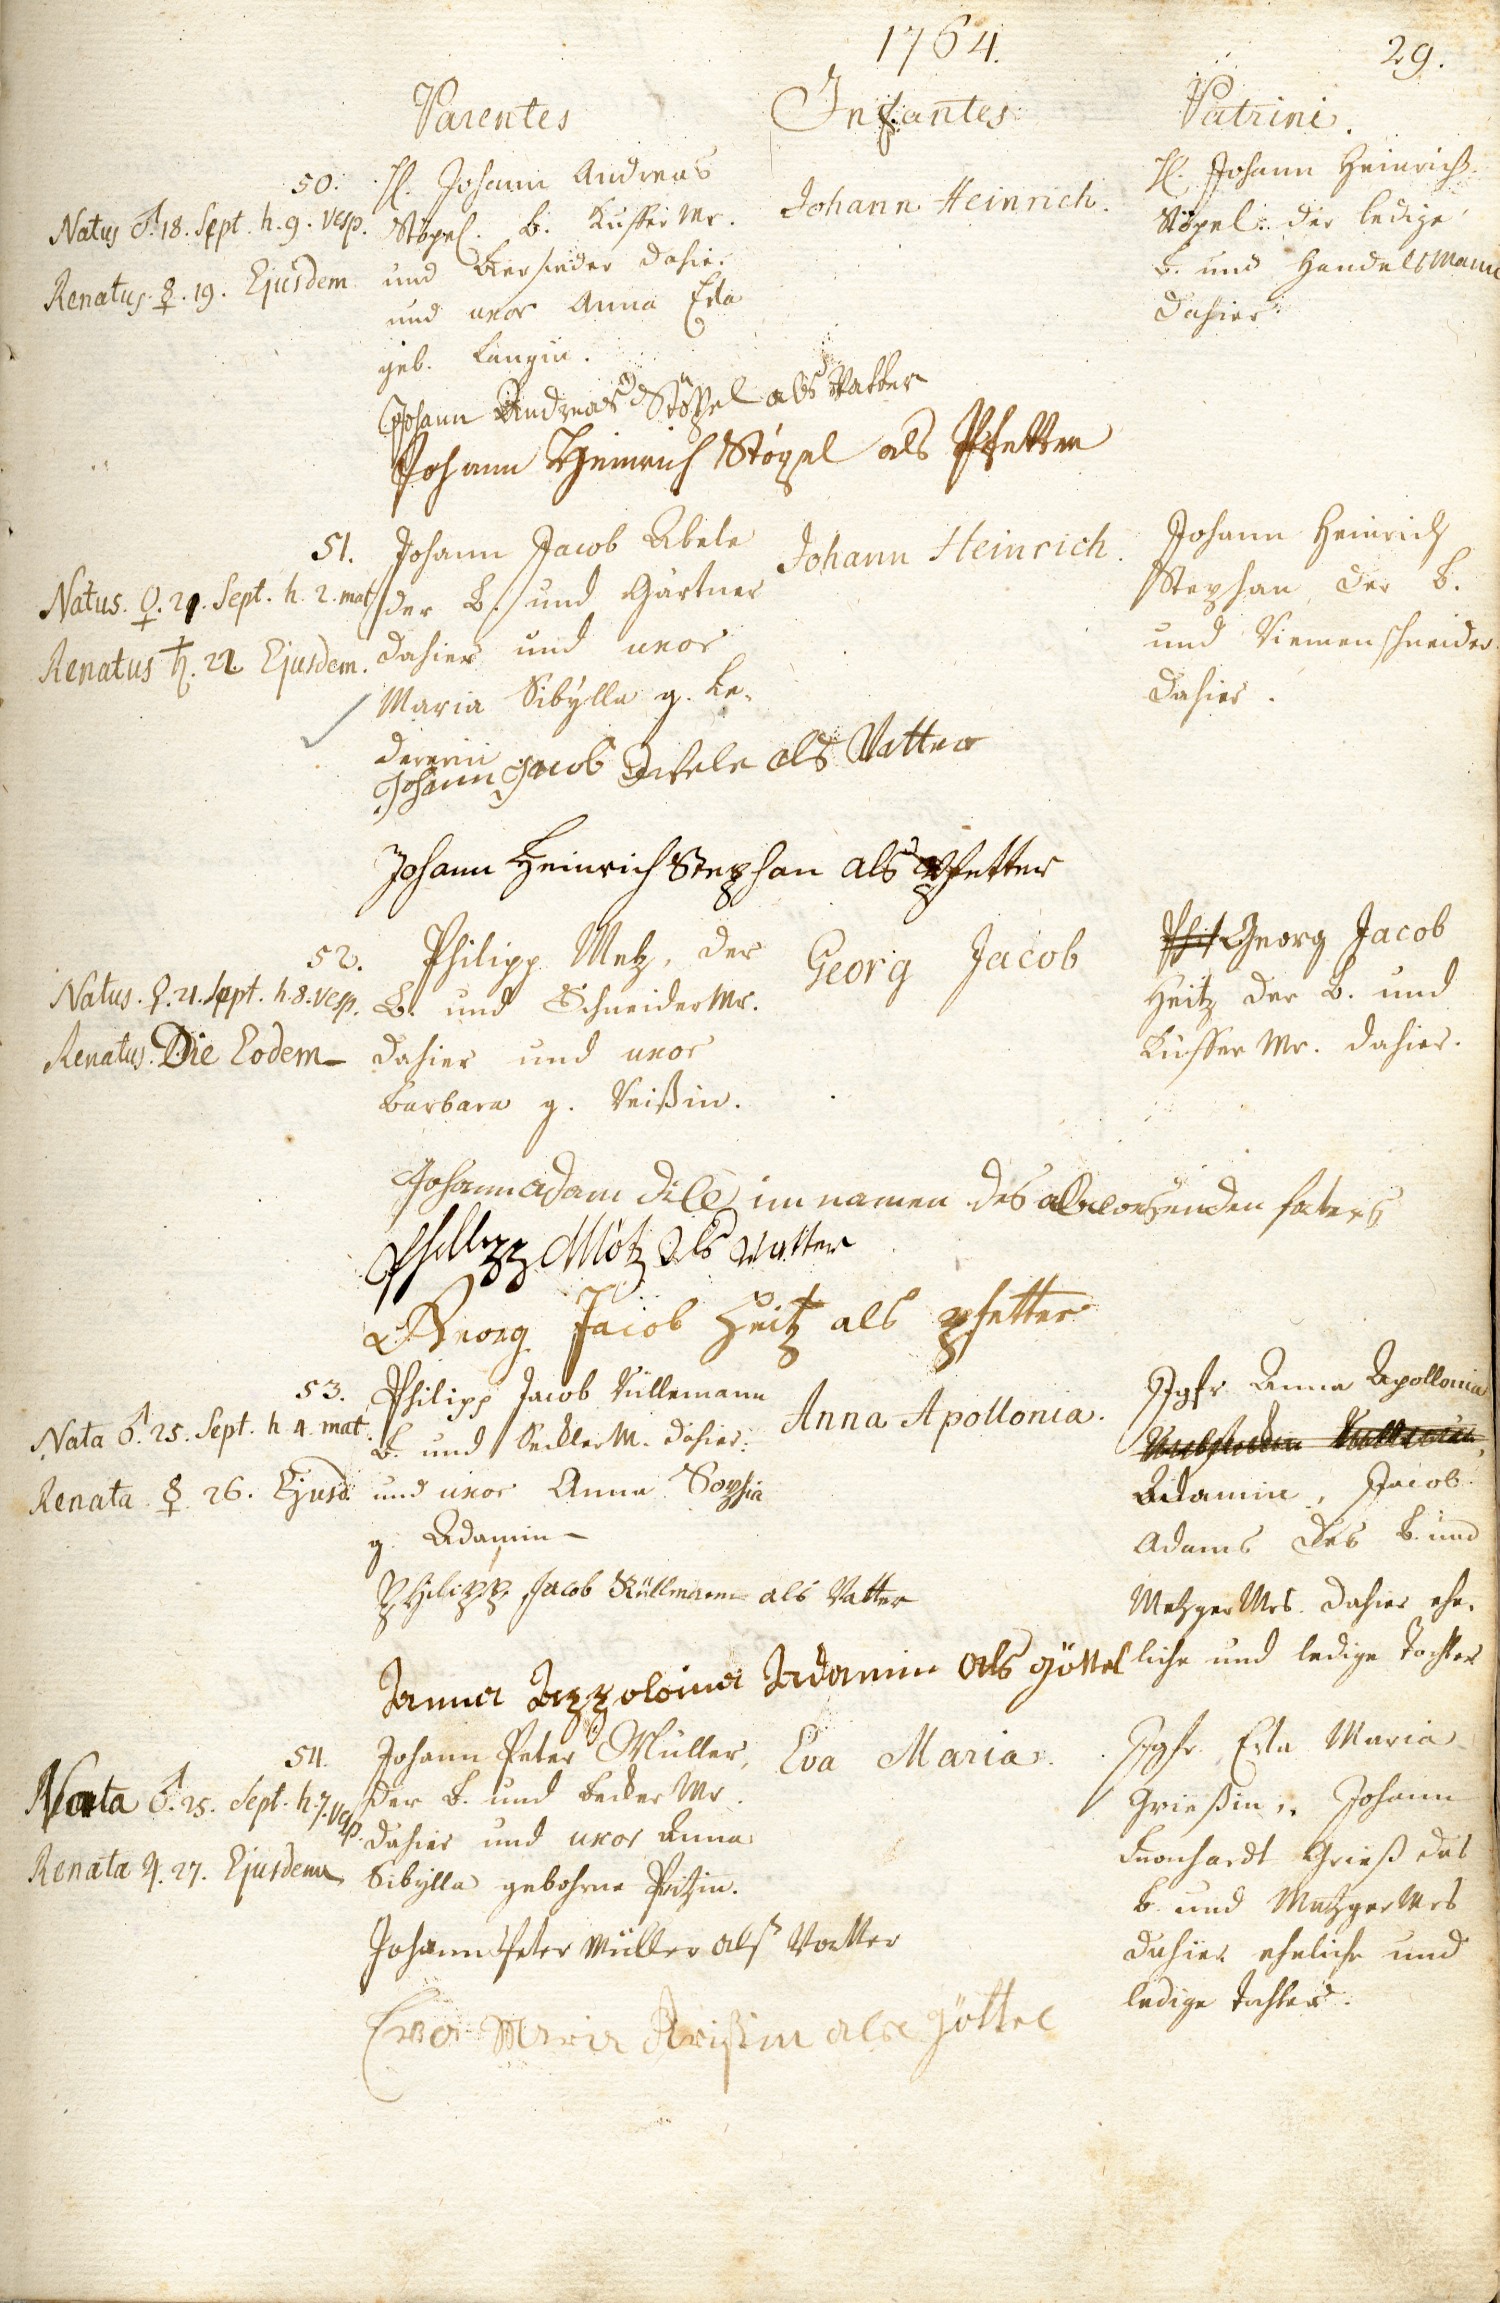 1764.
29.
Parentes
Infantes
Patrini.
50.
Natus ♂. 18. Sept. h. 9. vesp.
Renatus. ☿. 19. Ejusdem
H. Johann Andreas
Stöpel. B. Küffer Mr.
und Biersieder dahier
und uxor Anna Eva
geb. Langin.
Johann Heinrich.
H. Johann Heinrich
Stöpel. der ledige
B. und Handelsmann
dahier
Johann Andreas Stöppel als Vatter
Johann Heinrich Stöpel als Pfetter
51.
Natus. ♀. 21. Sept. h. 2. mat
Renatus ♄. 22. Ejusdem.
Johann Jacob Abele
der B. und Gärtner
dahier und uxor
Maria Sibÿlla g. Le-
dererin
Johann Heinrich.
Johann Heinrich
Stephan der B.
und Riemenschneider
dahier.
Johann Jacob Abele als Vatter
Johann Heinrich Stephan als Pfetter
52.
Natus. ♀. 21. Sept. h. 8. vesp.
Renatus. Die Eodem
Philipp Metz, der
B. und Schneider Mr.
dahier und uxor
Barbara g. Reißin.
Georg Jacob
Phil Georg Jacob
Heitz der B. und
Küffer Mr. dahier.
Johann adam dill im namen des faters
Phillipp Mötz als Vatter
Georg Jacob Heitz als Pfetter
53.
Nata ♂. 25. Sept. h. 4. mat.
Renata ☿ 26. Ejusd
Philipp Jacob Küllemann
B. und Seckler M. dahier
und uxor Anna Sophia
g. Adamin
Anna Apollonia.
Jgfr Anna Apollonia
Adamin, Jacob
Adams des B. und
Metzger Mrs. dahier ehe-
liche und ledige Tochter
Philipp Jacob Küllmann als Vatter
Anna Appolonia Adamin als göttel
54.
Nata ♂. 25. Sept. h. 7. vesp.
Renata ♃. 27. Ejusdem
Johann Peter Müller,
der B. und Becker Mr.
dahier und uxor Anna
Sibÿlla gebohrne Pitzin.
Eva Maria.
Jgfr. Eva Maria
Grießin, Johann
Leonhardt Grieß des
B. und Metzger Mrs
dahier eheliche und
ledige Tochter.
Johann Peter Müller als Vatter
Eva Maria als göttel